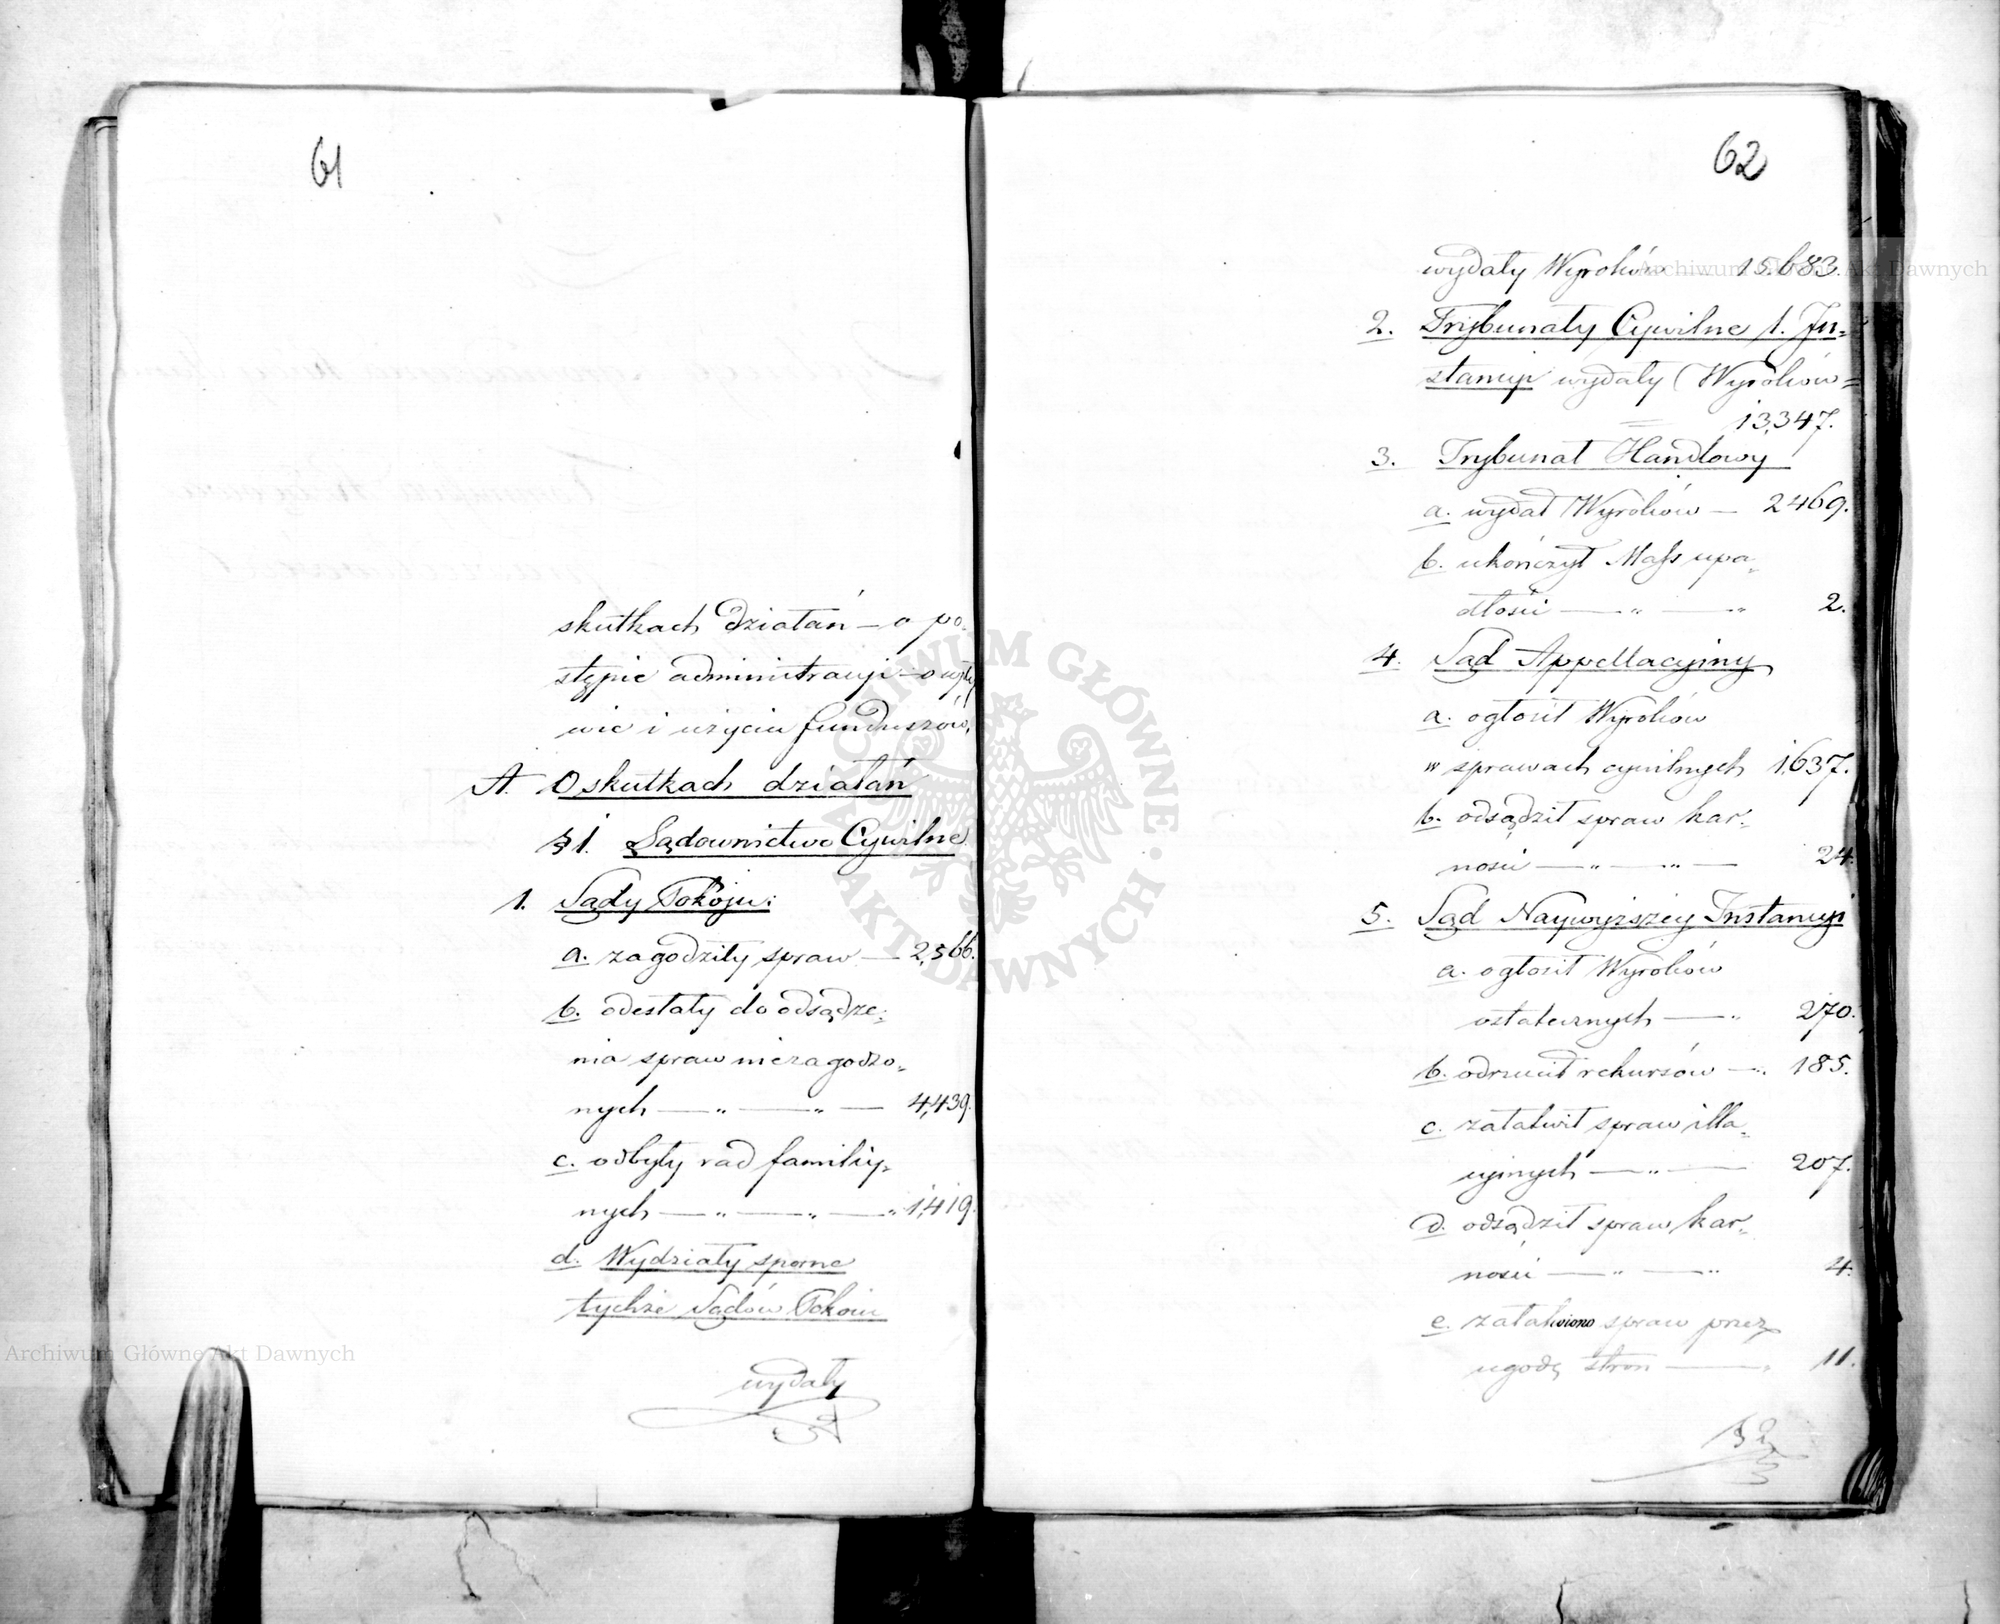 61
skutkach działań — o po-
stępie administracyi — o wpły-
wie i użyciu funduszów.
A. O skutkach działań
§ 1. Sądownictwo Cywilne
1. Sądy Pokoju:
a. zagodziły spraw — 2,566.
b. odesłały do odsądze-
nia spraw niezagodzo-
nych — „ — „ — 4,439.
c. odbyły rad familiy-
nych — „ — „ — „ 1,419.
d. Wydziały sporne
tychże Sądów Pokoiu
wydały
62
wydały Wyroków — 15.683.
2. Trybunały Cywilne 1. In-
stancyi wydały Wyroków =
= 13,347.
3. Trybunał Handlowy
a. wydał Wyroków — 2469.
b. ukończył Mass upa-
dłości — „ — „ 2.
4. Sąd Appellacyiny
a. ogłosił Wyroków
w sprawach cywilnych 1,637.
b. odsądził spraw kar-
ności — „ — „ — 24.
5. Sąd Naywyższey Instancyi
a. ogłosił Wyroków
ostatecznych — „ 270.
b. odrzucił rekursów — „ 185.
c. załatwił spraw illa-
cyinych — „ — 207.
d. odsądził spraw kar-
ności — „ — „ 4.
e. załatwiono spraw przez
ugodę stron — „ 11.
Archiwum Główne Akt Dawnych
ARCHIWUM GŁÓWNE · AKT DAWNYCH ·
Archiwum Główne Akt Dawnych